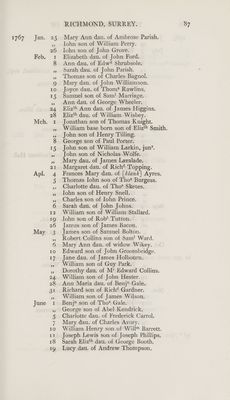 RICHMOND, SURREY. 87
1767 Jan. 25 Mary Ann dau. of Ambrose Parish.
„ Iohn son of William Perry.
26 Iohn son of Iohn Grove.
Feb. 1 Elizabeth dau. of John Ford.
8 Ann dau. of Edwd Shrubsole.
„ Sarah dau. of John Parish.
„ Thomas son of Charles Bagnol.
9 Mary dau. of John Williamson.
10 Joyce dau. of Thomas Rawlins.
15 Samuel son of Saml Marriage.
„ Ann dau. of George Wheeler.
24 Elizth Ann dau. of James Higgins.
28 Elizth dau. of William Wisbey.
Mch. 1 Jonathan son of Thomas Knight.
„ William base born son of Elizth Smith.
„ John son of Henry Tilling.
8 George son of Paul Porter.
15 John son of William Larkin, junr.
„ John son of Nicholas Wolfe.
„ Mary dau. of James Leeslade.
21 Margaret dau. of Richd Topping.
Apl. 4 Frances Mary dau. of (blank) Ayres.
5 Thomas Iohn son of Thos Burgess.
„ Charlotte dau. of Thos Sketes.
„ Iohn son of Henry Snell.
„ Charles son of John Prince.
6 Sarah dau. of John Johns.
12 William son of William Stallard.
19 John son of Robt Tutton.
26 James son of James Bacon.
May 3 James son of Samuel Bolton.
„ Robert Collins son of Saml Ward.
6 Mary Ann dau. of widow Wikey.
10 Edward son of John Groombridge.
17 Jane dau. of James Holbourn.
„ William son of Guy Park.
„ Dorothy dau. of Mr Edward Collins.
24 William son of John Hester.
28 Ann Maria dau. of Benjn Gale.
31 Richard son of Richd Gardner.
„ William son of James Wilson.
June 1 Benjn son of Thos Gale.
„ George son of Abel Kendrick.
5 Charlotte dau. of Frederick Carrol.
7 Mary dau. of Charles Avory.
10 William Henry son of Willm Barrett.
11 Joseph Lewis son of Joseph Phillips.
18 Sarah Elizth dau. of George Booth.
19 Lucy dau. of Andrew Thompson.